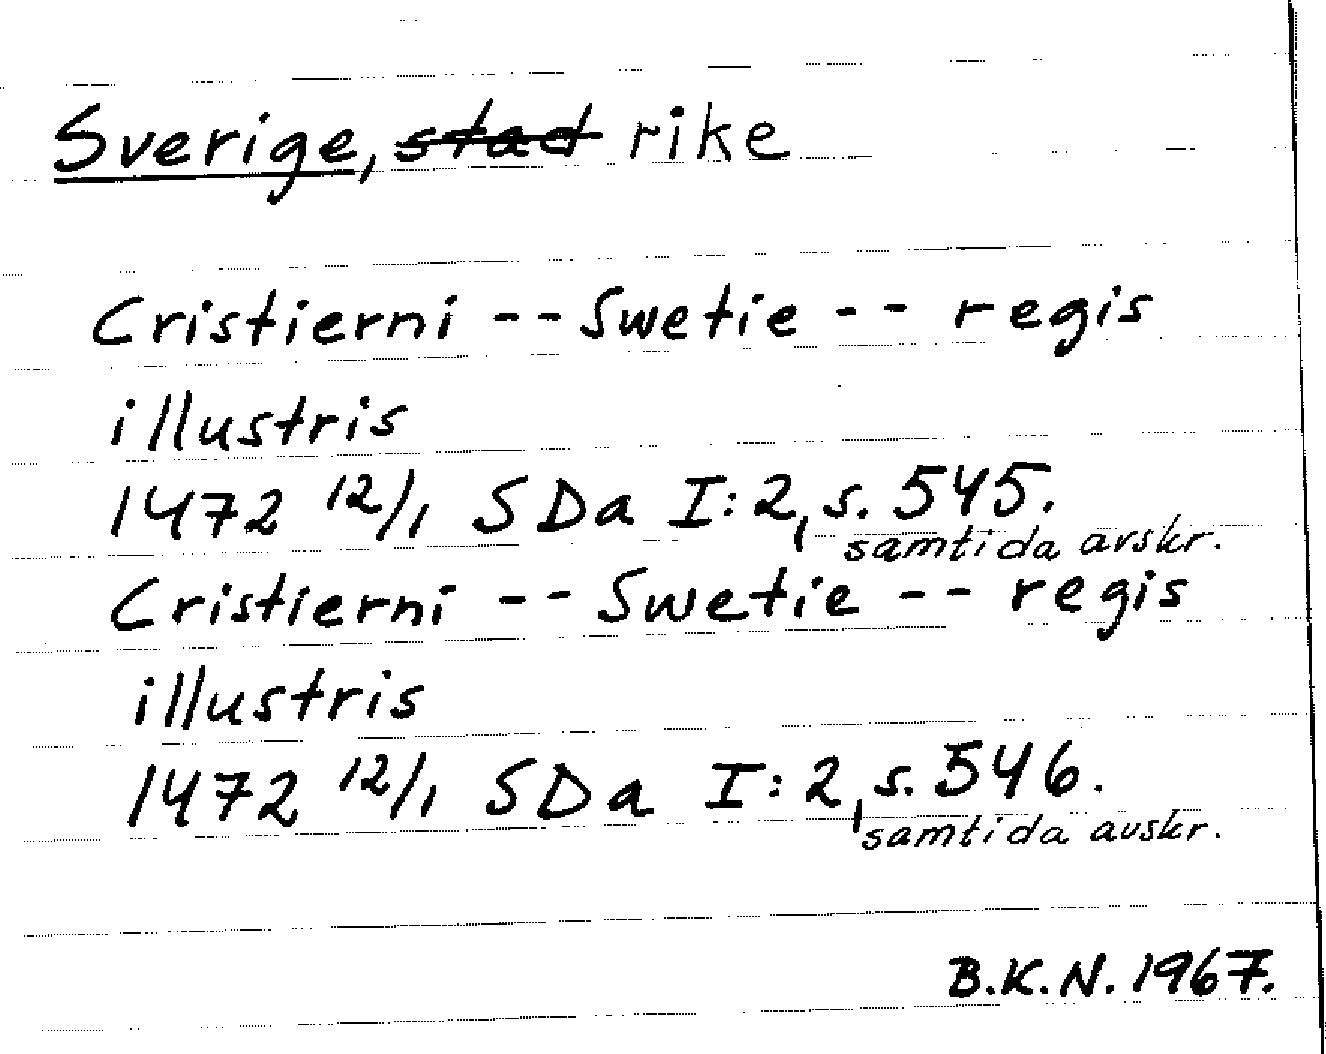 Sverige, stad rike
Cristierni -- Swetie -- regis
illustris
1472 12/1 SDa I:2, s. 545.
samtida avskr.
Cristierni -- Swetie -- regis
illustris
1472 12/1 SDa I:2, s. 546.
samtida avskr.
B.K.N. 1967.